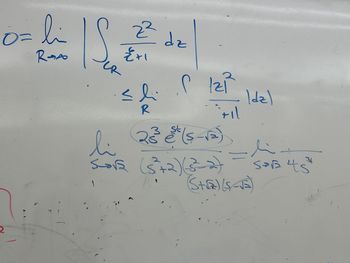 0 = lim R→∞ | ∫ C_R z² / z+1 dz |
≤ lim R ∫ |z|² / +1| |dz|
lim s→√2 2s³ e^{st} (s-√2) / (s²+2)(s²-2) = lim s→√2 4s³
(s+√2)(s-√2)